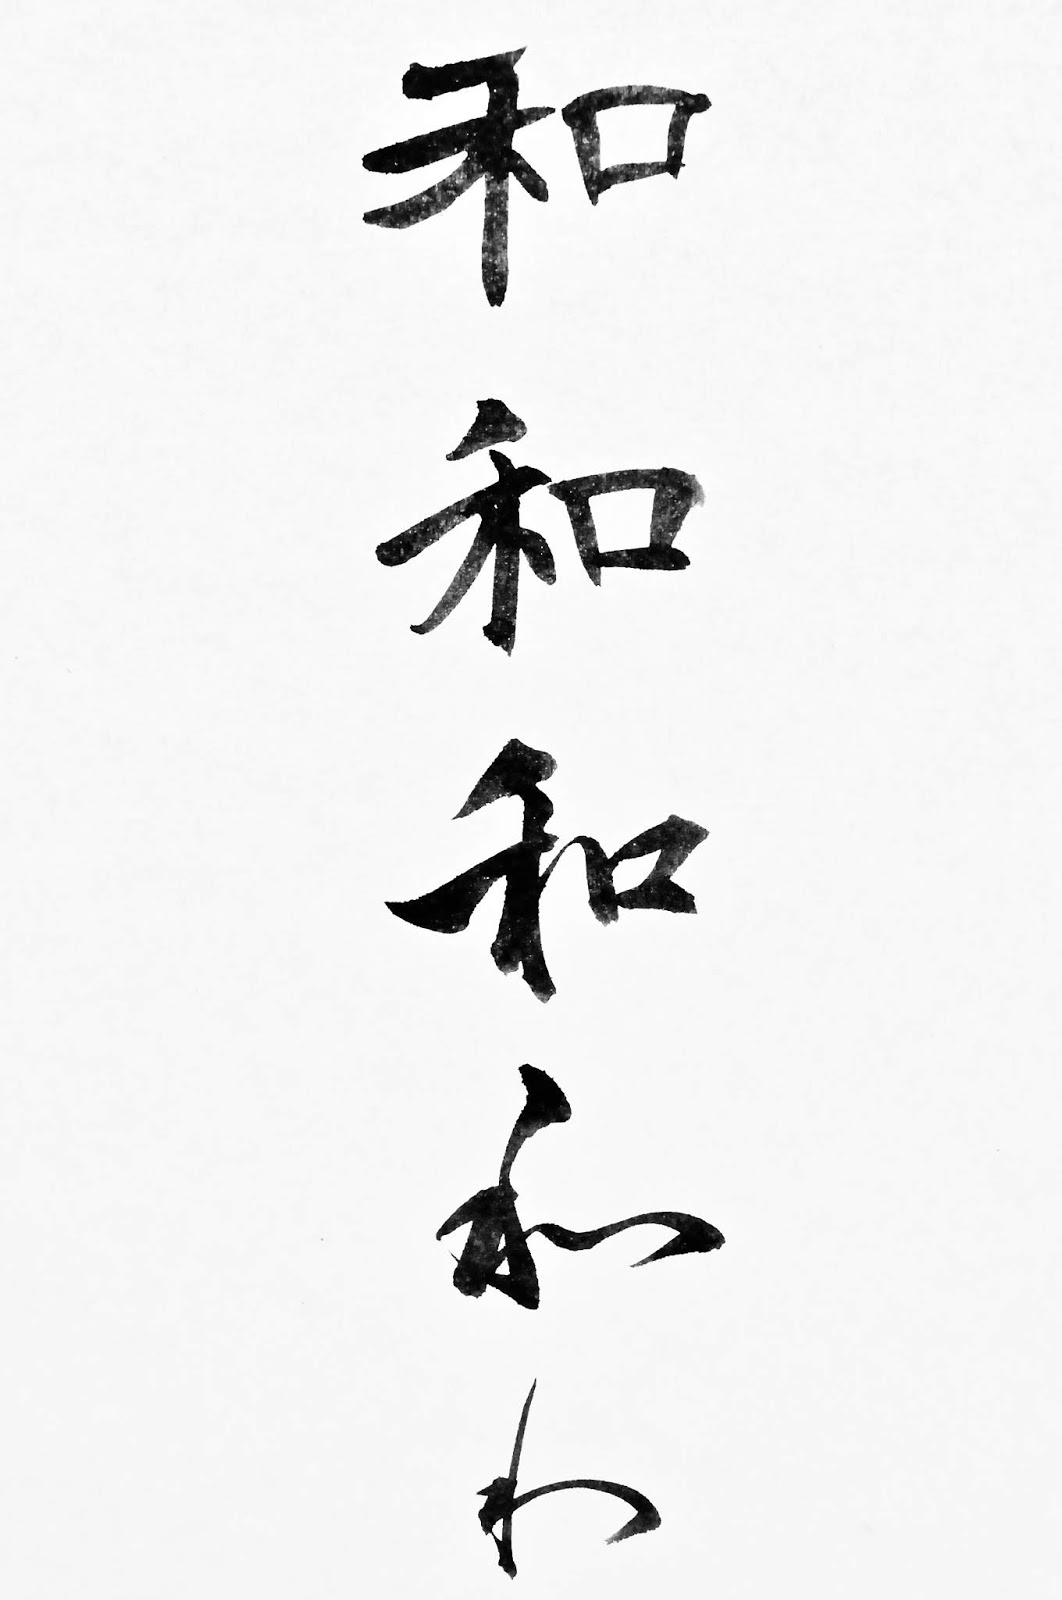 和
和
和
和
わ